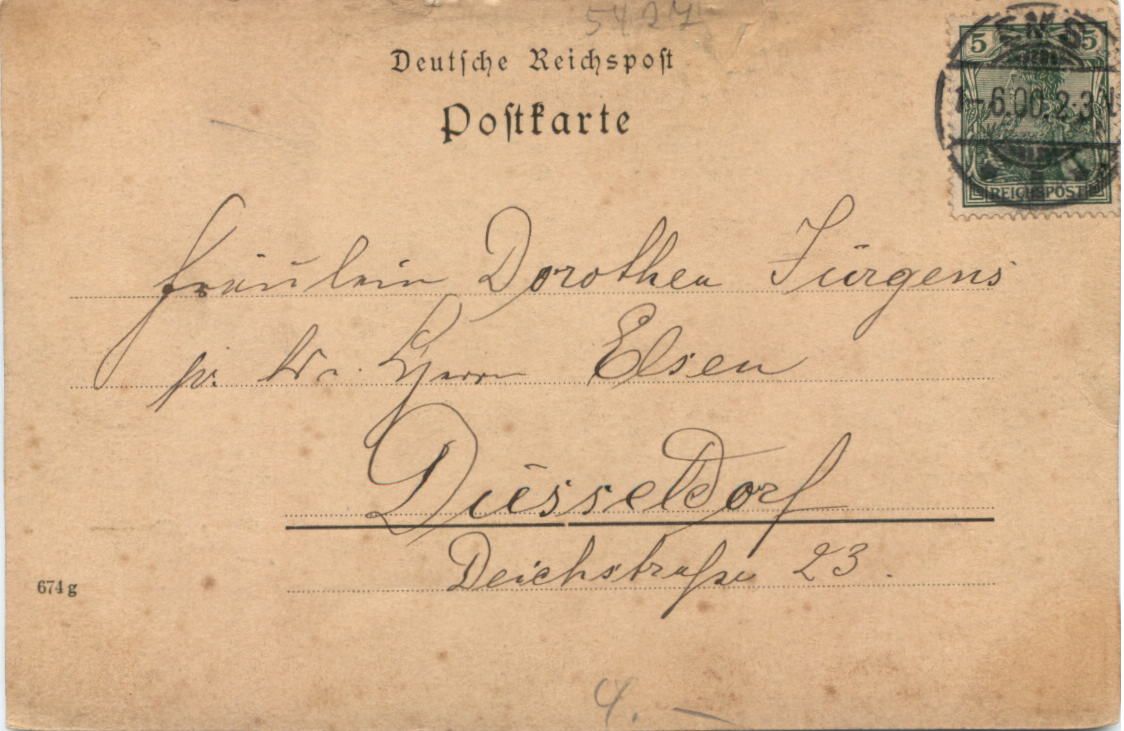 5427
Deutsche Reichspost
Postkarte
5 5
EMS
1-6.00.2-3
REICHSPOST
Fräulein Dorothea Jürgens
Herrn Elsen
Düsseldorf
Deichstraße 23.
674 g
4.—